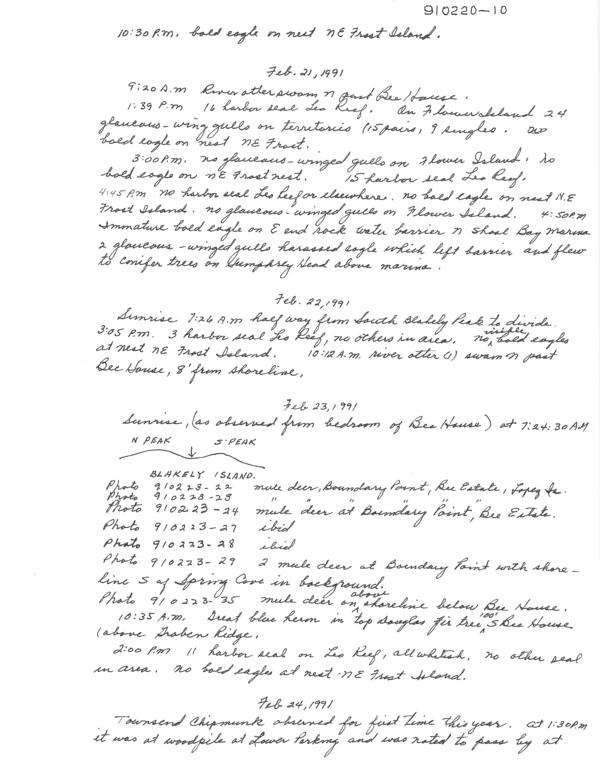 910220-10
10:30 P.M. bald eagle on nest NE Frost Island.
Feb. 21, 1991
9:20 A.M River otter swam N past Bee House.
1:39 P.M 16 harbor seal Leo Reef. On Flower Island 24
glaucous-wing gulls on territories (15 pairs, 9 singles.
bald eagle on nest NE Frost.
3:00 P.M. no glaucous-winged gulls on Flower Island. no
bald eagle on NE Frost nest. 15 harbor seal Leo Reef.
4:45 P.M no harbor seal Leo Reef or elsewhere. no bald eagle on nest N.E
Frost Island. no glaucous-winged gulls on Flower Island. 4:50 P.M
Immature bald eagle on E end rock water barrier N Shoal Bay Marina
2 glaucous-winged gulls harassed eagle which left barrier and flew
to conifer trees on Humphrey Head above marina.
Feb. 22, 1991
Sunrise 7:26 A.M half way from South Blakely Peak to divide.
3:05 P.M. 3 harbor seal Leo Reef, no others in area. no visible bald eagles
at nest NE Frost Island. 10:12 A.M. river otter (1) swam N past
Bee House, 8' from shoreline.
Feb 23, 1991
Sunrise, (as observed from bedroom of Bee House) at 7:24:30 AM
N PEAK S. PEAK
BLAKELY ISLAND.
Photo 910223-22 mule deer, Boundary Point, Bee Estate, Lopez Is.
Photo 910223-23 " " " " "
Photo 910223-24 mule deer at Boundary Point, Bee Estate.
Photo 910223-27 ibid
Photo 910223-28 ibid
Photo 910223-29 2 mule deer at Boundary Point with shore-
line S of Spring Cove in background.
Photo 910223-35 mule deer on above shoreline below Bee House.
10:35 A.M. Great blue heron in top Douglas fir tree 100' S Bee House
(above Graben Ridge.
2:00 P.M 11 harbor seal on Leo Reef, all whitish. no other seal
in area. no bald eagles at nest NE Frost Island.
Feb 24, 1991
Townsend Chipmunk observed for first time this year. at 1:30 P.M
it was at woodpile at Lower Parking and was noted to pass by at